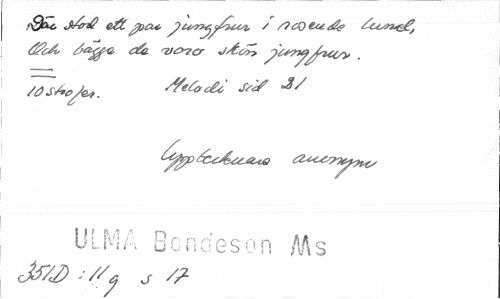 Där stod ett par jungfrur i rosende lund,
Och bägge de voro skön jungfrur.
10 strofer. Melodi sid 21
Upptecknare anonym
ULMA Bondeson Ms
351D : 11 g s 17